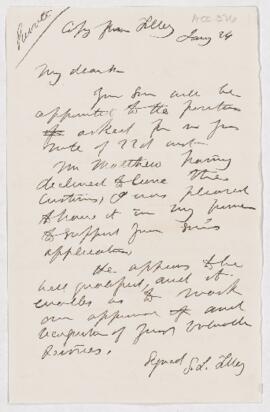 Private
Copy from Tilley
Jany 24
My dear Sir
Your Son will be
appointed to the position
asked for in your
note of 22d inst
Mr Matthew having
declined to leave the
Customs, I was pleased
to have it in my power
to support your son's
application,
He appears to be
well qualified, and it
enables us to mark
our appreciation of and
recognition of your valuable
services.
Signed S. L. Tilley